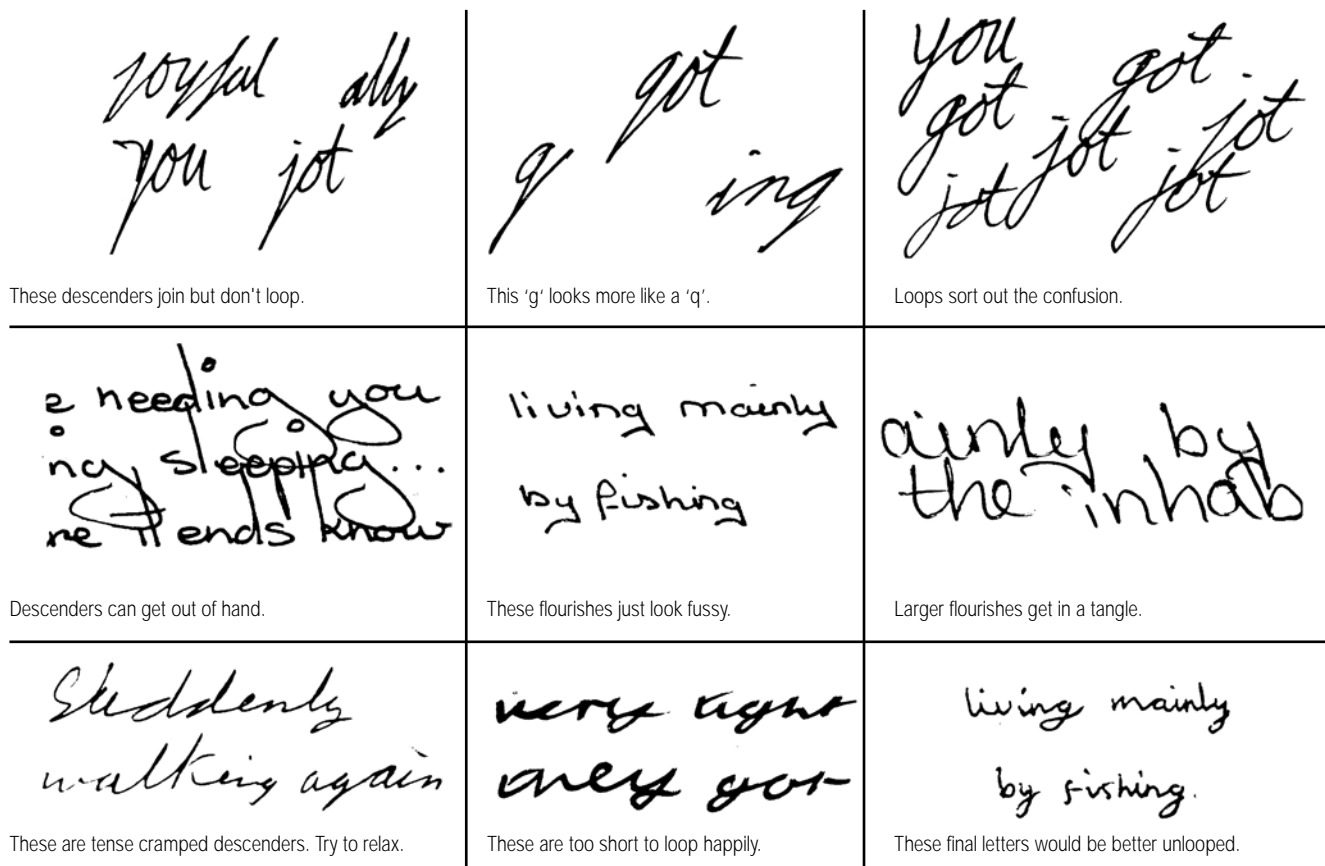 joyful ally
you jot
These descenders join but don't loop.
got
g
ing
This 'g' looks more like a 'q'.
you
got
got
jot
jot
jot
jot
Loops sort out the confusion.
needing you
ng sleeping...
re friends know
Descenders can get out of hand.
living mainly
by fishing
These flourishes just look fussy.
ainly by
the inhab
Larger flourishes get in a tangle.
Suddenly
walking again
These are tense cramped descenders. Try to relax.
very tight
they got
These are too short to loop happily.
living mainly
by fishing.
These final letters would be better unlooped.